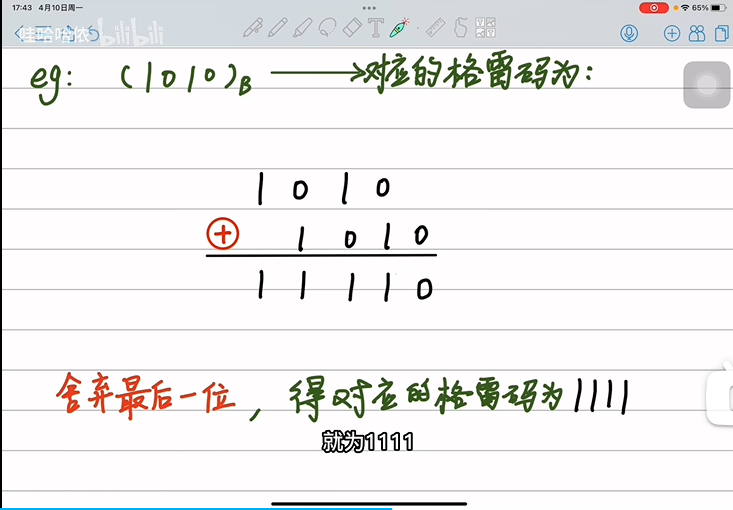 17:43 4月10日周一
65%
哇哈哈侬 bilibili
eg: (1010)B ⟶对应的格雷码为:
1 0 1 0
⊕ 1 0 1 0
1 1 1 1 0
舍弃最后一位, 得对应的格雷码为1111
就为1111